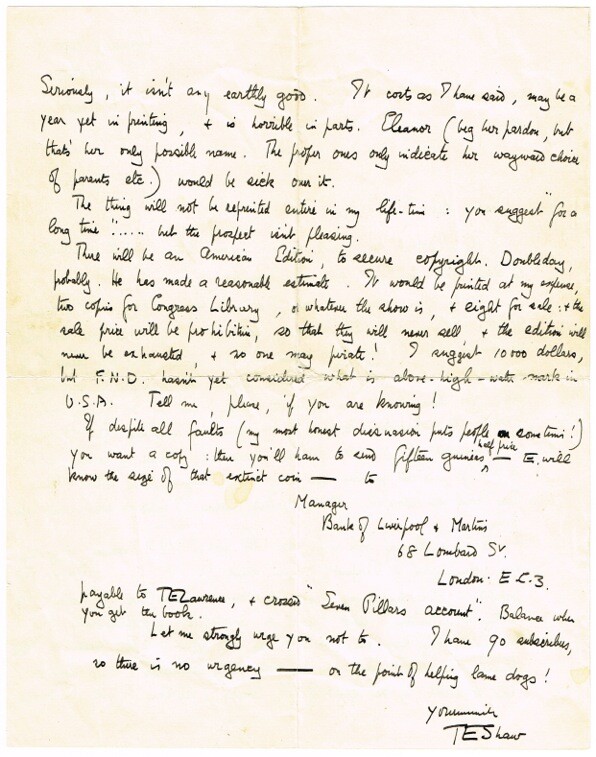 Seriously, it isn't any earthly good. It costs as I have said, may be a
year yet in printing, & is horrible in parts. Eleanor (beg her pardon, but
that's her only possible name. The proper ones only indicate her wayward choice
of parents etc.) would be sick over it.
The thing will not be reprinted entire in my life-time : you suggest "for a
long time"..... but the prospect isn't pleasing.
There will be an American Edition, to secure copyright. Doubleday,
probably. He has made a reasonable estimate. It would be printed at my expense,
two copies for Congress Library, or whatever the show is, & eight for sale : & the
sale price will be prohibitive, so that they will never sell, & the edition will
never be exhausted, & no one may pirate! I suggest 10 000 dollars,
but F.N.D. hasn't yet considered what is above-high-water-mark in
U.S.A. Tell me, please, if you are knowing!
If despite all faults (my most honest dissuasion puts people on sometimes!)
you want a copy : then you'll have to send fifteen guineas half price — E. will
know the size of that extinct coin — to
Manager
Bank of Liverpool & Martins
68 Lombard St.
London. E C.3.
payable to TELawrence, & crossed "Seven Pillars account". Balance when
you get the book.
Let me strongly urge you not to. I have 90 subscribers,
so there is no urgency — on the point of helping lame dogs!
Yours
TEShaw